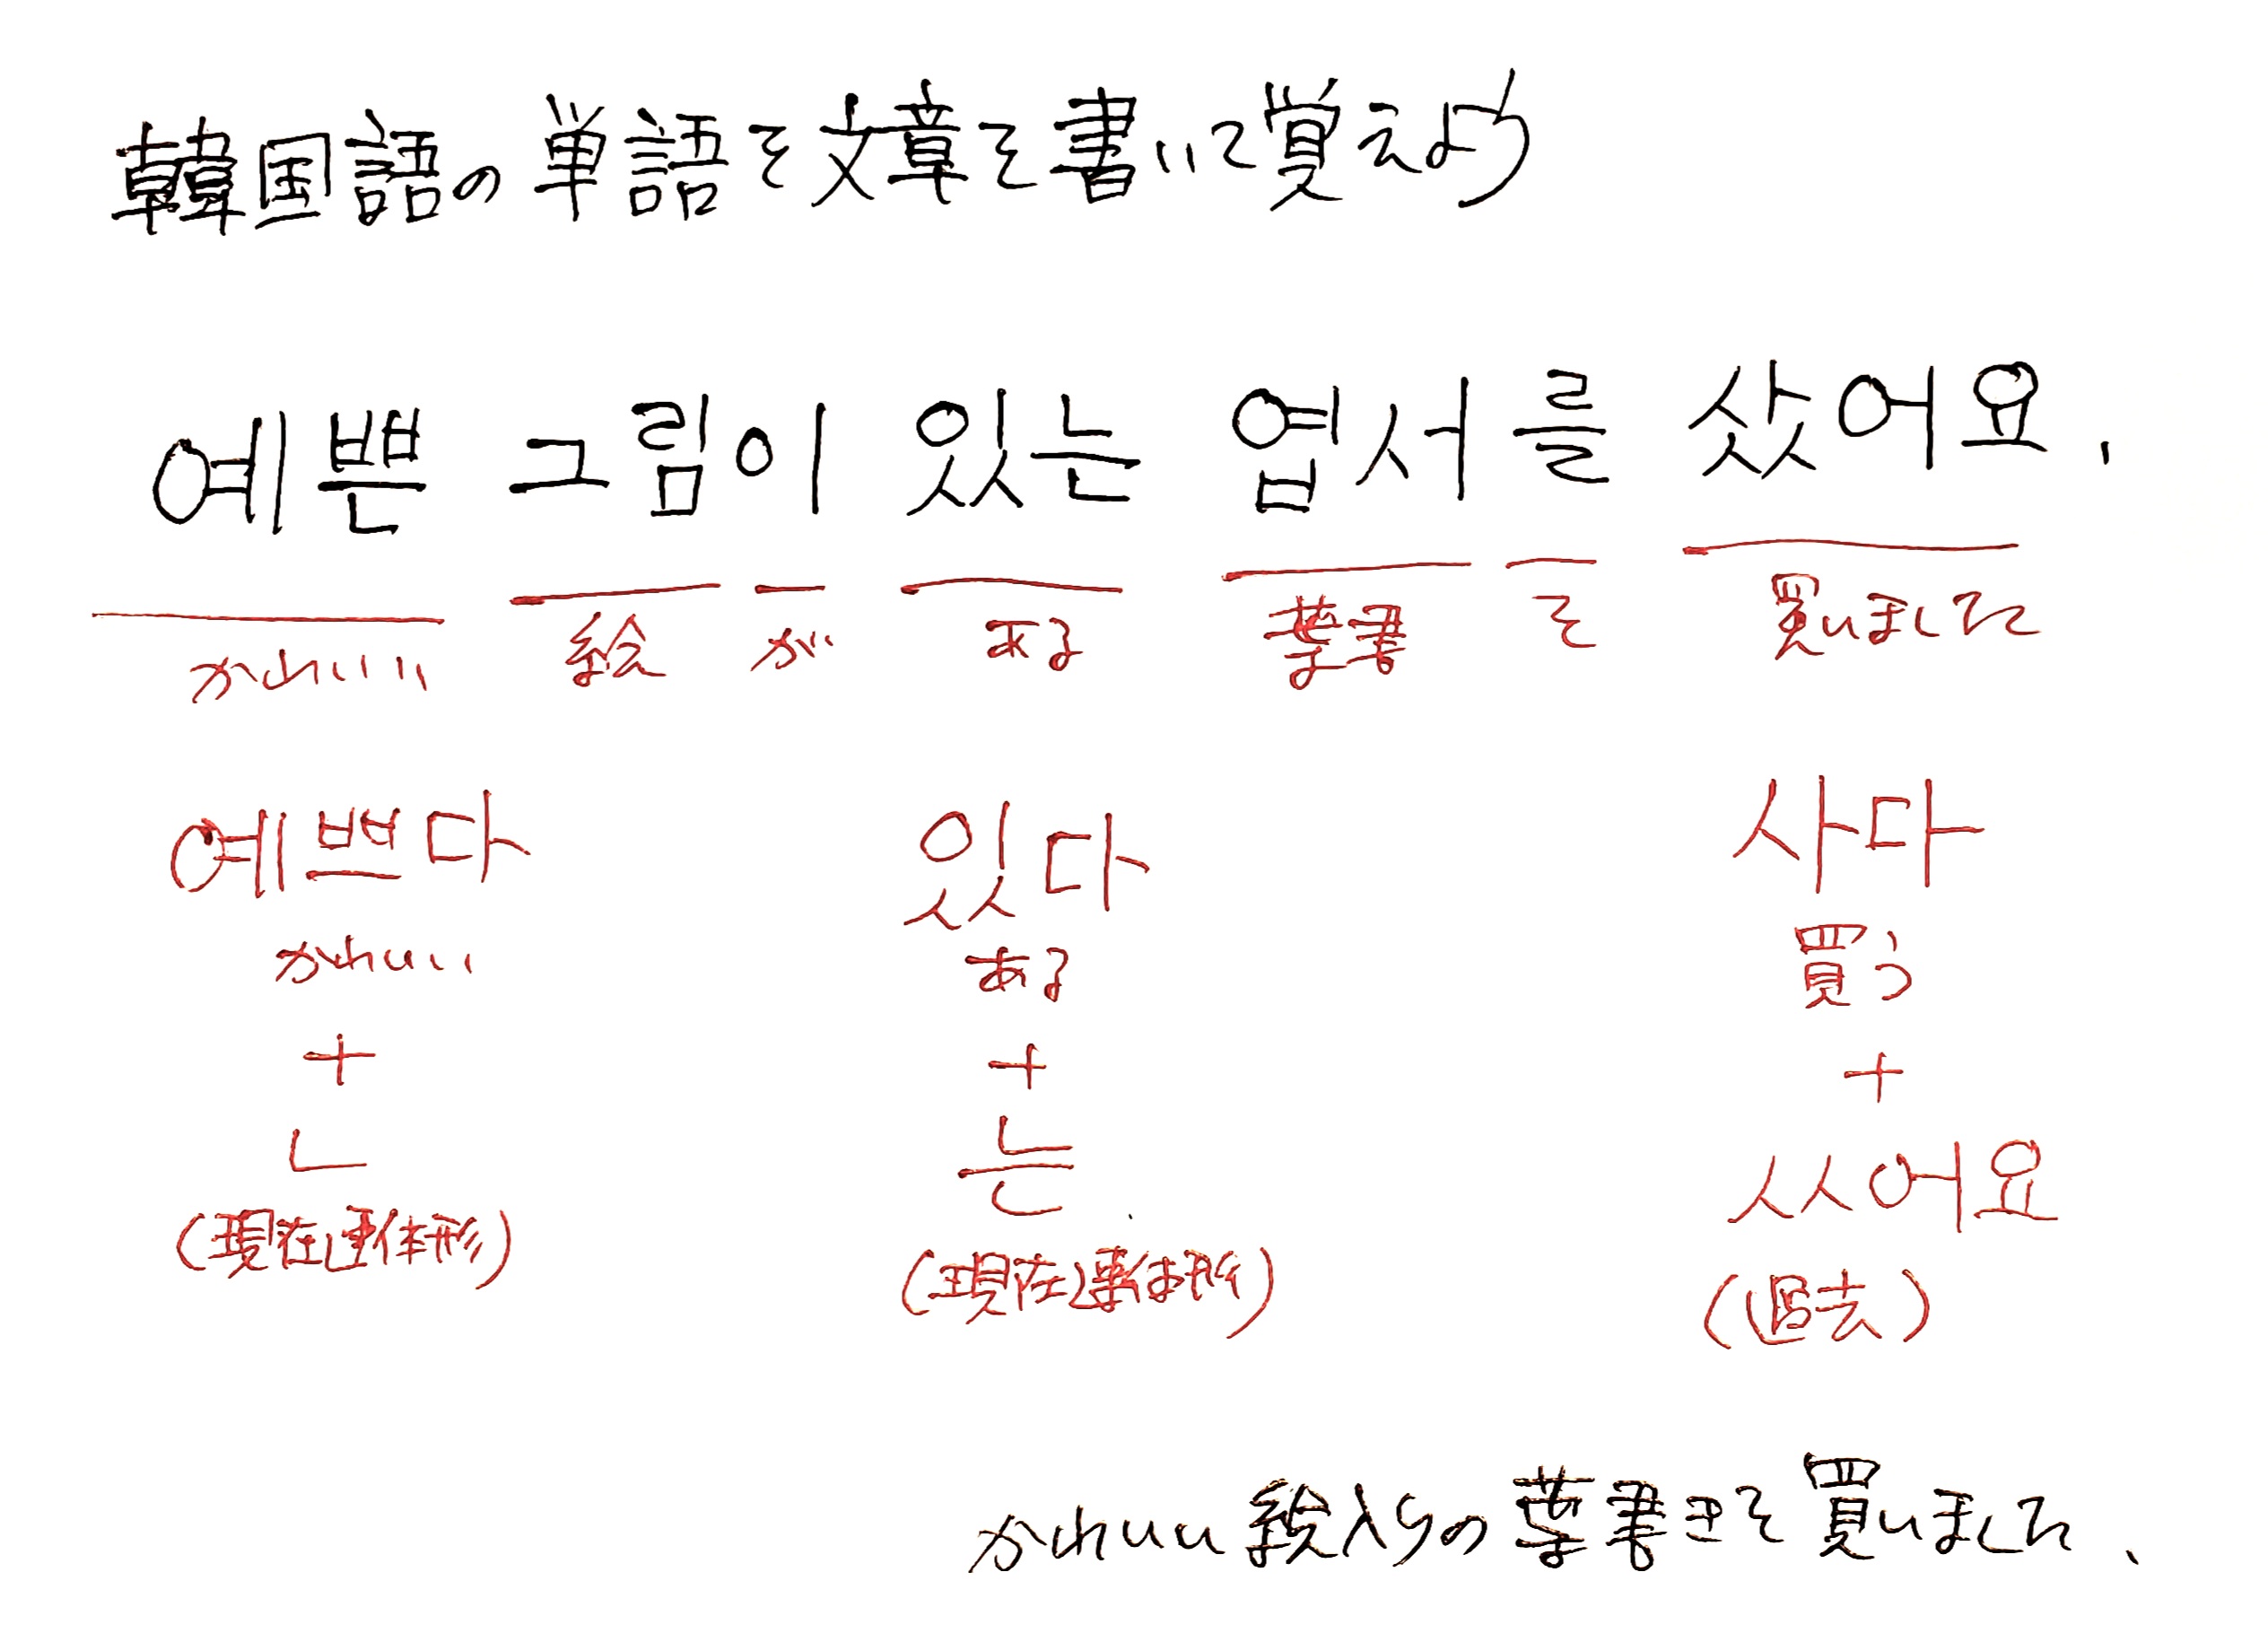 韓国語の単語を文章を書いて覚えよう
예쁜 그림이 있는 엽서를 샀어요.
かわいい 絵 が ある 葉書 を 買いました
예쁘다 있다 사다
かわいい ある 買う
+ + +
ㄴ 는 ㅆ어요
(現在連体形) (現在連体形) (過去)
かわいい絵入りの葉書きを買いました、